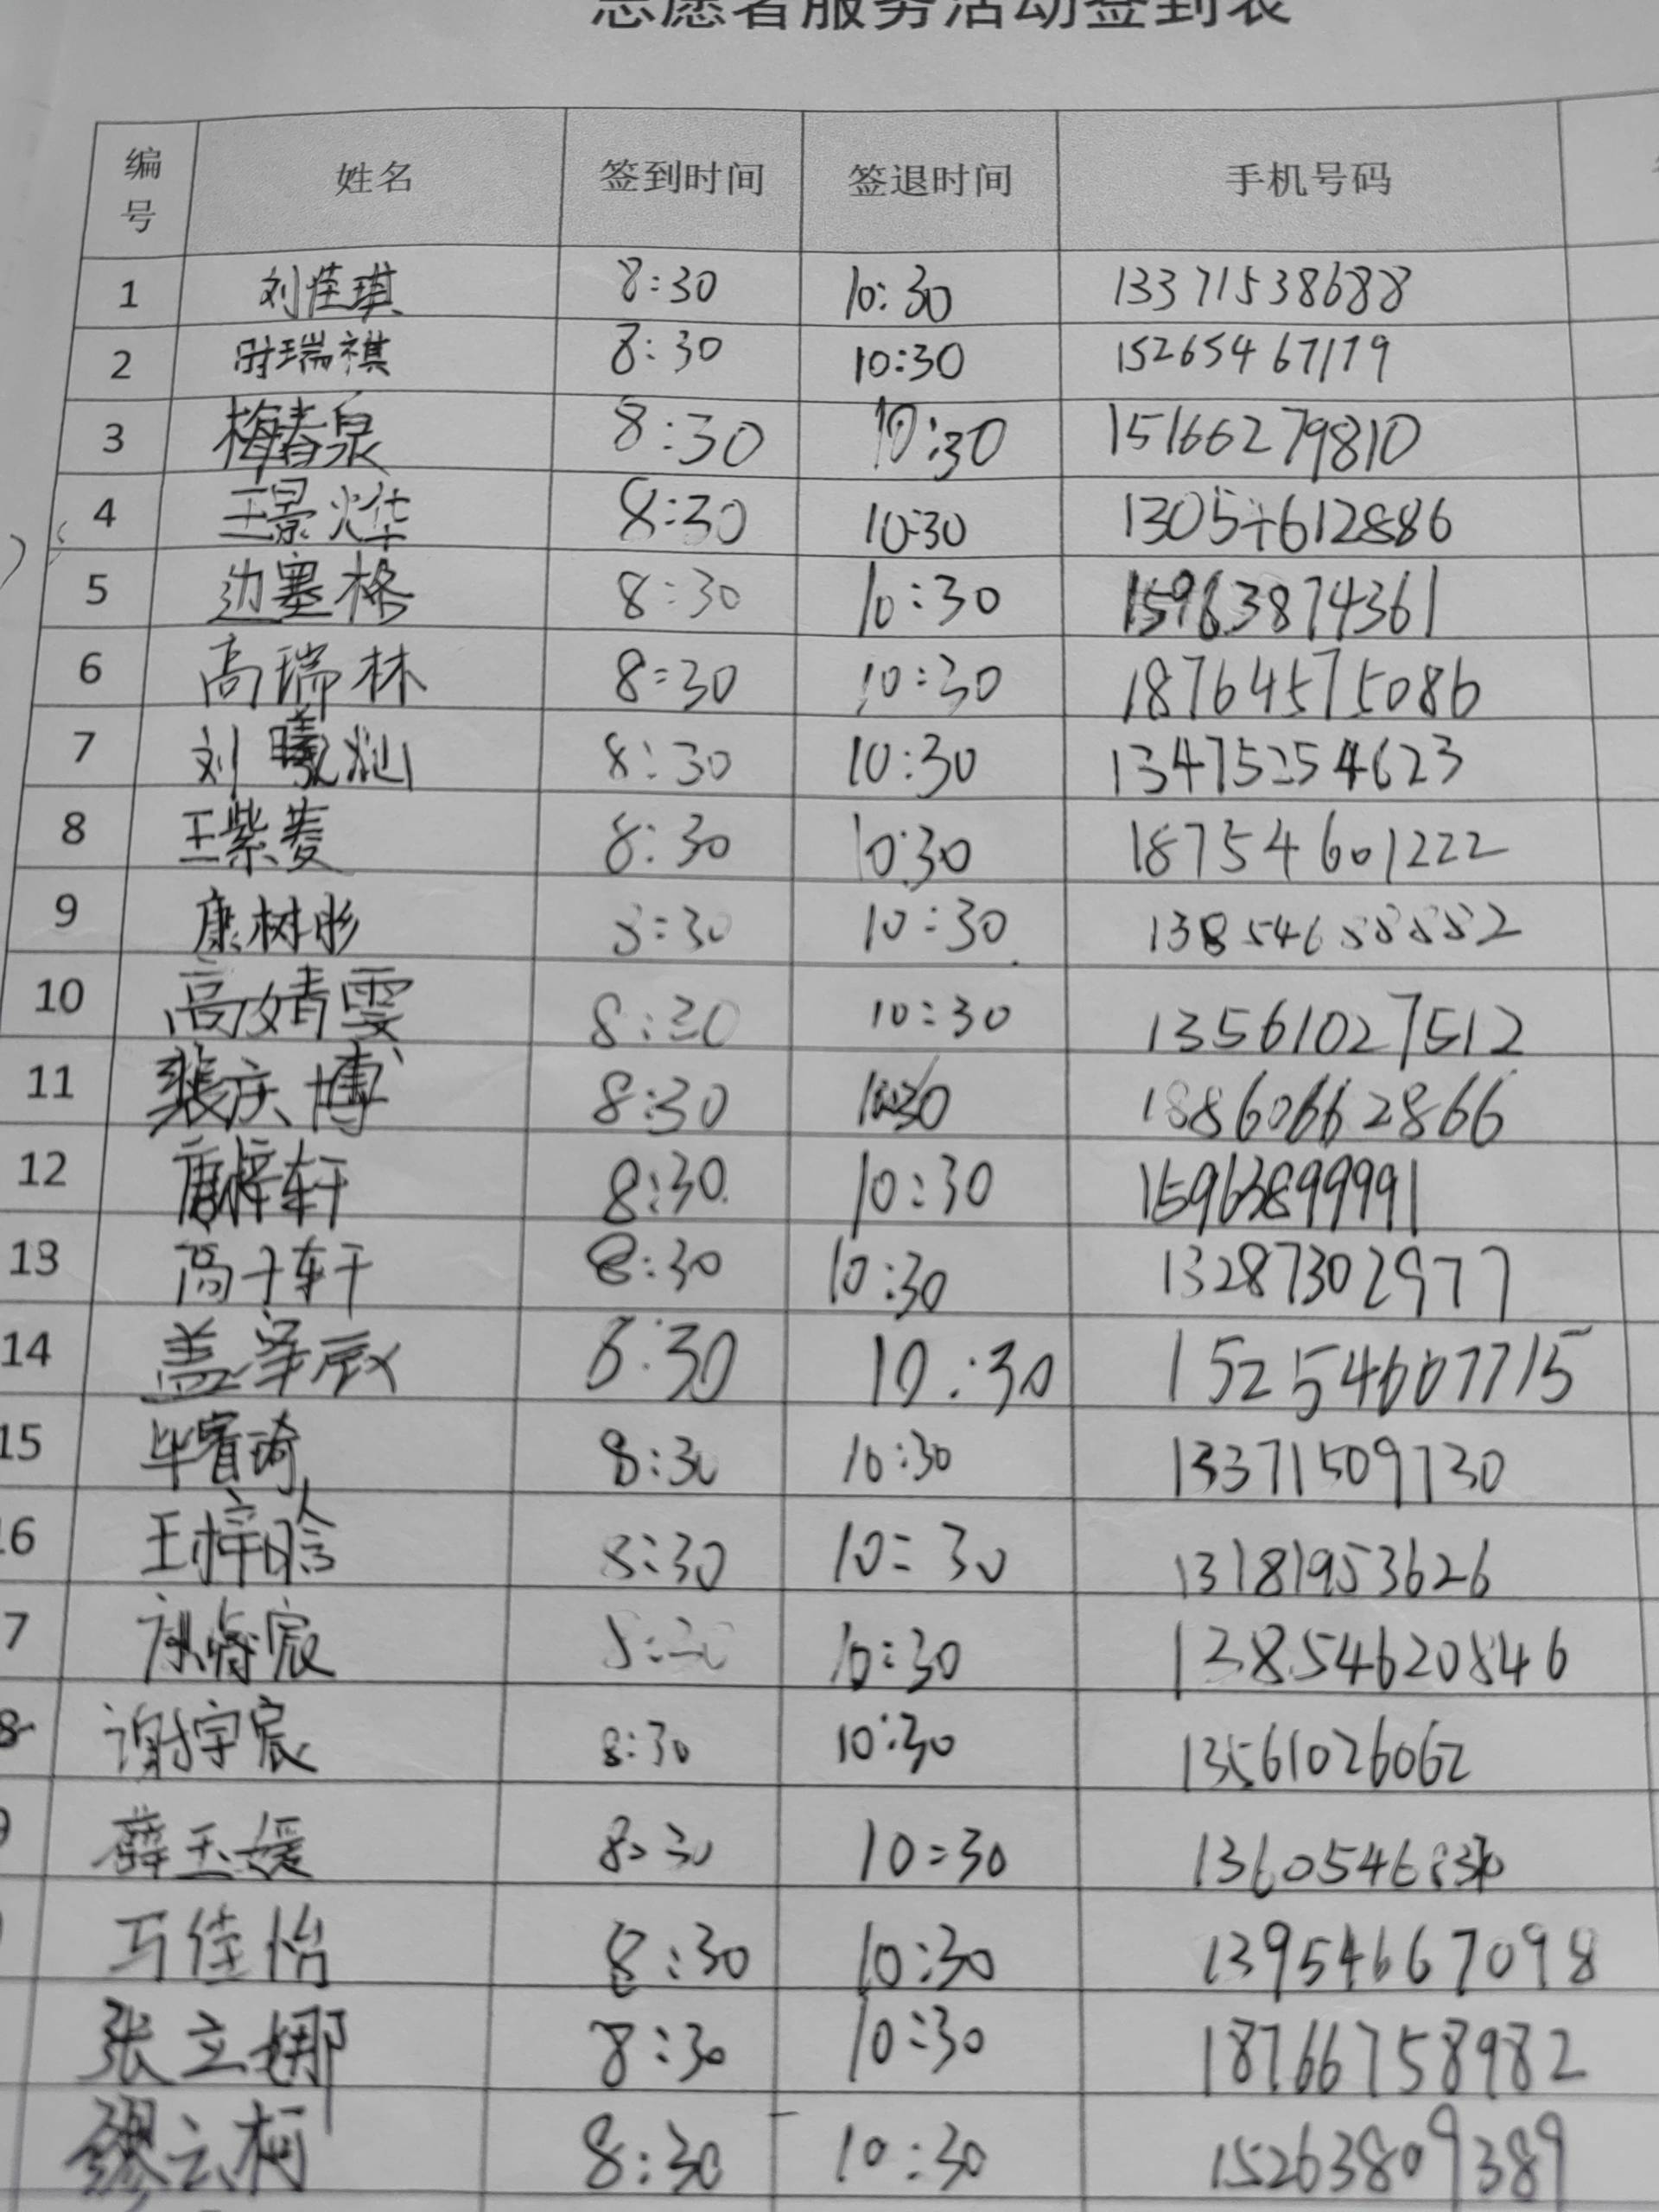 志愿者服务活动签到表
编号 姓名 签到时间 签退时间 手机号码
1 刘佳琪 8:30 10:30 13371538688
2 时瑞祺 8:30 10:30 15265467179
3 梅春泉 8:30 10:30 15166279810
4 王景烨 8:30 10:30 13054612886
5 边塞格 8:30 10:30 15963874361
6 高瑞林 8:30 10:30 18764575086
7 刘曦灿 8:30 10:30 13475254623
8 王紫菱 8:30 10:30 18754601222
9 康树彤 8:30 10:30 13854688882
10 高婧雯 8:30 10:30 13561027512
11 裴庆博 8:30 10:30 18860662866
12 唐梓轩 8:30 10:30 15963899991
13 高子轩 8:30 10:30 13287302977
14 盖泽宸 8:30 10:30 15254607715
15 毕睿琦 8:30 10:30 13371509730
16 王梓晗 8:30 10:30 13181953626
7 8:30 10:30 13854620846
8 谢宇宸 8:30 10:30 13561026062
9 薛玉媛 8:30 10:30
马佳怡 8:30 10:30 13954667098
张立娜 8:30 10:30 18766758982
缪云柯 8:30 10:30 15263809389